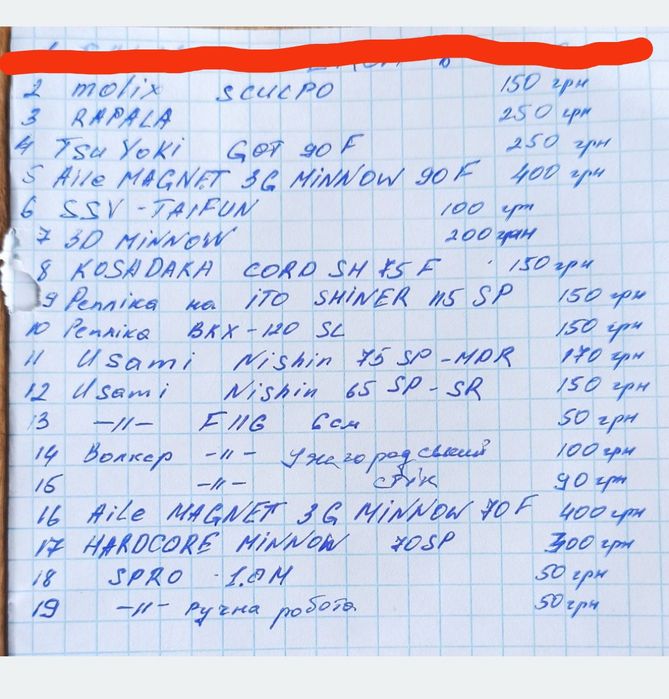 2 molix SCULPO 150 грн
3 RAPALA 250 грн
4 TSU YOKI GOT 90 F 250 грн
5 Aile MAGNET 3G MINNOW 90 F 400 грн
6 SSV - TAIFUN 100 грн
7 3D MINNOW 200 грн
8 KOSADAKA CORD SH 75 F 150 грн
9 Репліка на ITO SHINER 115 SP 150 грн
10 Репліка BKX-120 SL 150 грн
11 Usami Nishin 75 SP-MDR 170 грн
12 Usami Nishin 65 SP-SR 150 грн
13 -//- 6 см 50 грн
14 Волкер -//- Ужгородський 100 грн
15 -//- стік 90 грн
16 Aile MAGNET 3G MINNOW 70 F 400 грн
17 HARDCORE MINNOW 70SP 300 грн
18 SPRO 50 грн
19 -//- ручна робота 50 грн